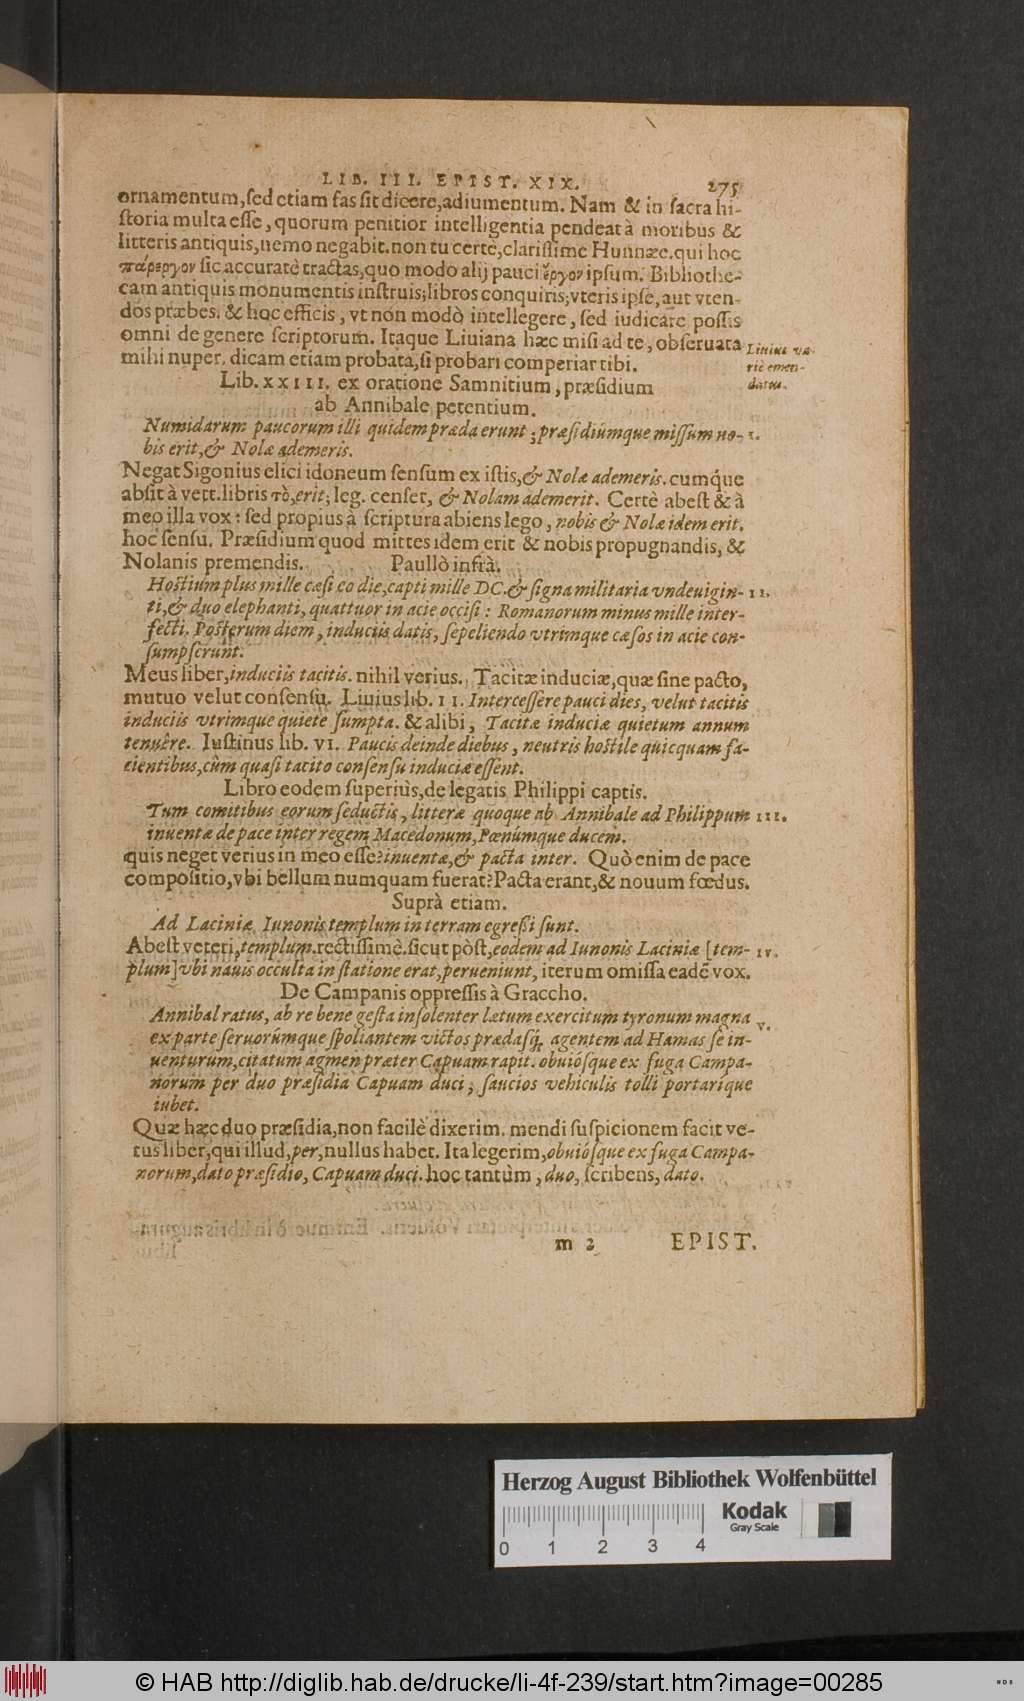 LIB. III. EPIST. XIX. 275
ornamentum, sed etiam fas sit dicere, adiumentum. Nam & in sacra hi-
storia multa esse, quorum penitior intelligentia pendeat à moribus &
litteris antiquis, nemo negabit. non tu certè, clarissime Hunnæe. qui hoc
πάρεργον sic accuratè tractas, quo modo alij pauci ἔργον ipsum. Bibliothe-
cam antiquis monumentis instruis; libros conquiris; vteris ipse, aut vten-
dos præbes. & hoc efficis, vt non modò intellegere, sed iudicare possis
omni de genere scriptorum. Itaque Liuiana hæc misi ad te, obseruata
mihi nuper. dicam etiam probata, si probari comperiar tibi.
Liuius va-
riè emen-
datus.
Lib. XXIII. ex oratione Samnitium, præsidium
ab Annibale petentium.
Numidarum paucorum illi quidem præda erunt; præsidiúmque missum no- I.
bis erit, & Nolæ ademeris.
Negat Sigonius elici idoneum sensum ex istis, & Nolæ ademeris. cumq́ue
absit à vett. libris τὸ, erit; leg. censet, & Nolam ademerit. Certè abest & à
meo illa vox: sed propius à scriptura abiens lego, nobis & Nolæ idem erit.
hoc sensu. Præsidium quod mittes idem erit & nobis propugnandis, &
Nolanis premendis. Paullò infrà.
Hostium plus mille cæsi eo die, capti mille DC. & signa militaria vndeuigin- II.
ti, & duo elephanti, quattuor in acie occisi: Romanorum minus mille inter-
fecti. Posterum diem, induciis datis, sepeliendo vtrimque cæsos in acie con-
sumpserunt.
Meus liber, induciis tacitis. nihil verius. Tacitæ induciæ, quæ sine pacto,
mutuo velut consensu. Liuius lib. II. Intercessere pauci dies, velut tacitis
induciis vtrimque quiete sumpta. & alibi, Tacitæ induciæ quietum annum
tenuêre. Iustinus lib. VI. Paucis deinde diebus, neutris hostile quicquam fa-
cientibus, cûm quasi tacito consensu induciæ essent.
Libro eodem superiùs, de legatis Philippi captis.
Tum comitibus eorum seductis, litteræ quoque ab Annibale ad Philippum III.
inuentæ de pace inter regem Macedonum, Pœnúmque ducem.
quis neget verius in meo esse? inuentæ, & pacta inter. Quò enim de pace
compositio, vbi bellum numquam fuerat? Pacta erant, & nouum fœdus.
Suprà etiam.
Ad Laciniæ Iunonis templum in terram egressi sunt.
Abest veteri, templum. rectissimè. sicut pòst, eodem ad Iunonis Laciniæ [tem- IV.
plum] vbi nauis occulta in statione erat, perueniunt, iterum omissa eadē vox.
De Campanis oppressis à Graccho.
Annibal ratus, ab re bene gesta insolenter lætum exercitum tyronum magna V.
ex parte seruorúmque spoliantem victos prædasq́; agentem ad Hamas se in-
uenturum, citatum agmen præter Capuam rapit. obuiósque ex fuga Campa-
norum per duo præsidia Capuam duci, saucios vehiculis tolli portarique
iubet.
Quæ hæc duo præsidia, non facilè dixerim. mendi suspicionem facit ve-
tus liber, qui illud, per, nullus habet. Ita legerim, obuiósque ex fuga Campa-
norum, dato præsidio, Capuam duci. hoc tantùm, duo, scribens, dato.
m 2 EPIST.
Herzog August Bibliothek Wolfenbüttel
Kodak
Gray Scale
0 1 2 3 4
© HAB http://diglib.hab.de/drucke/li-4f-239/start.htm?image=00285